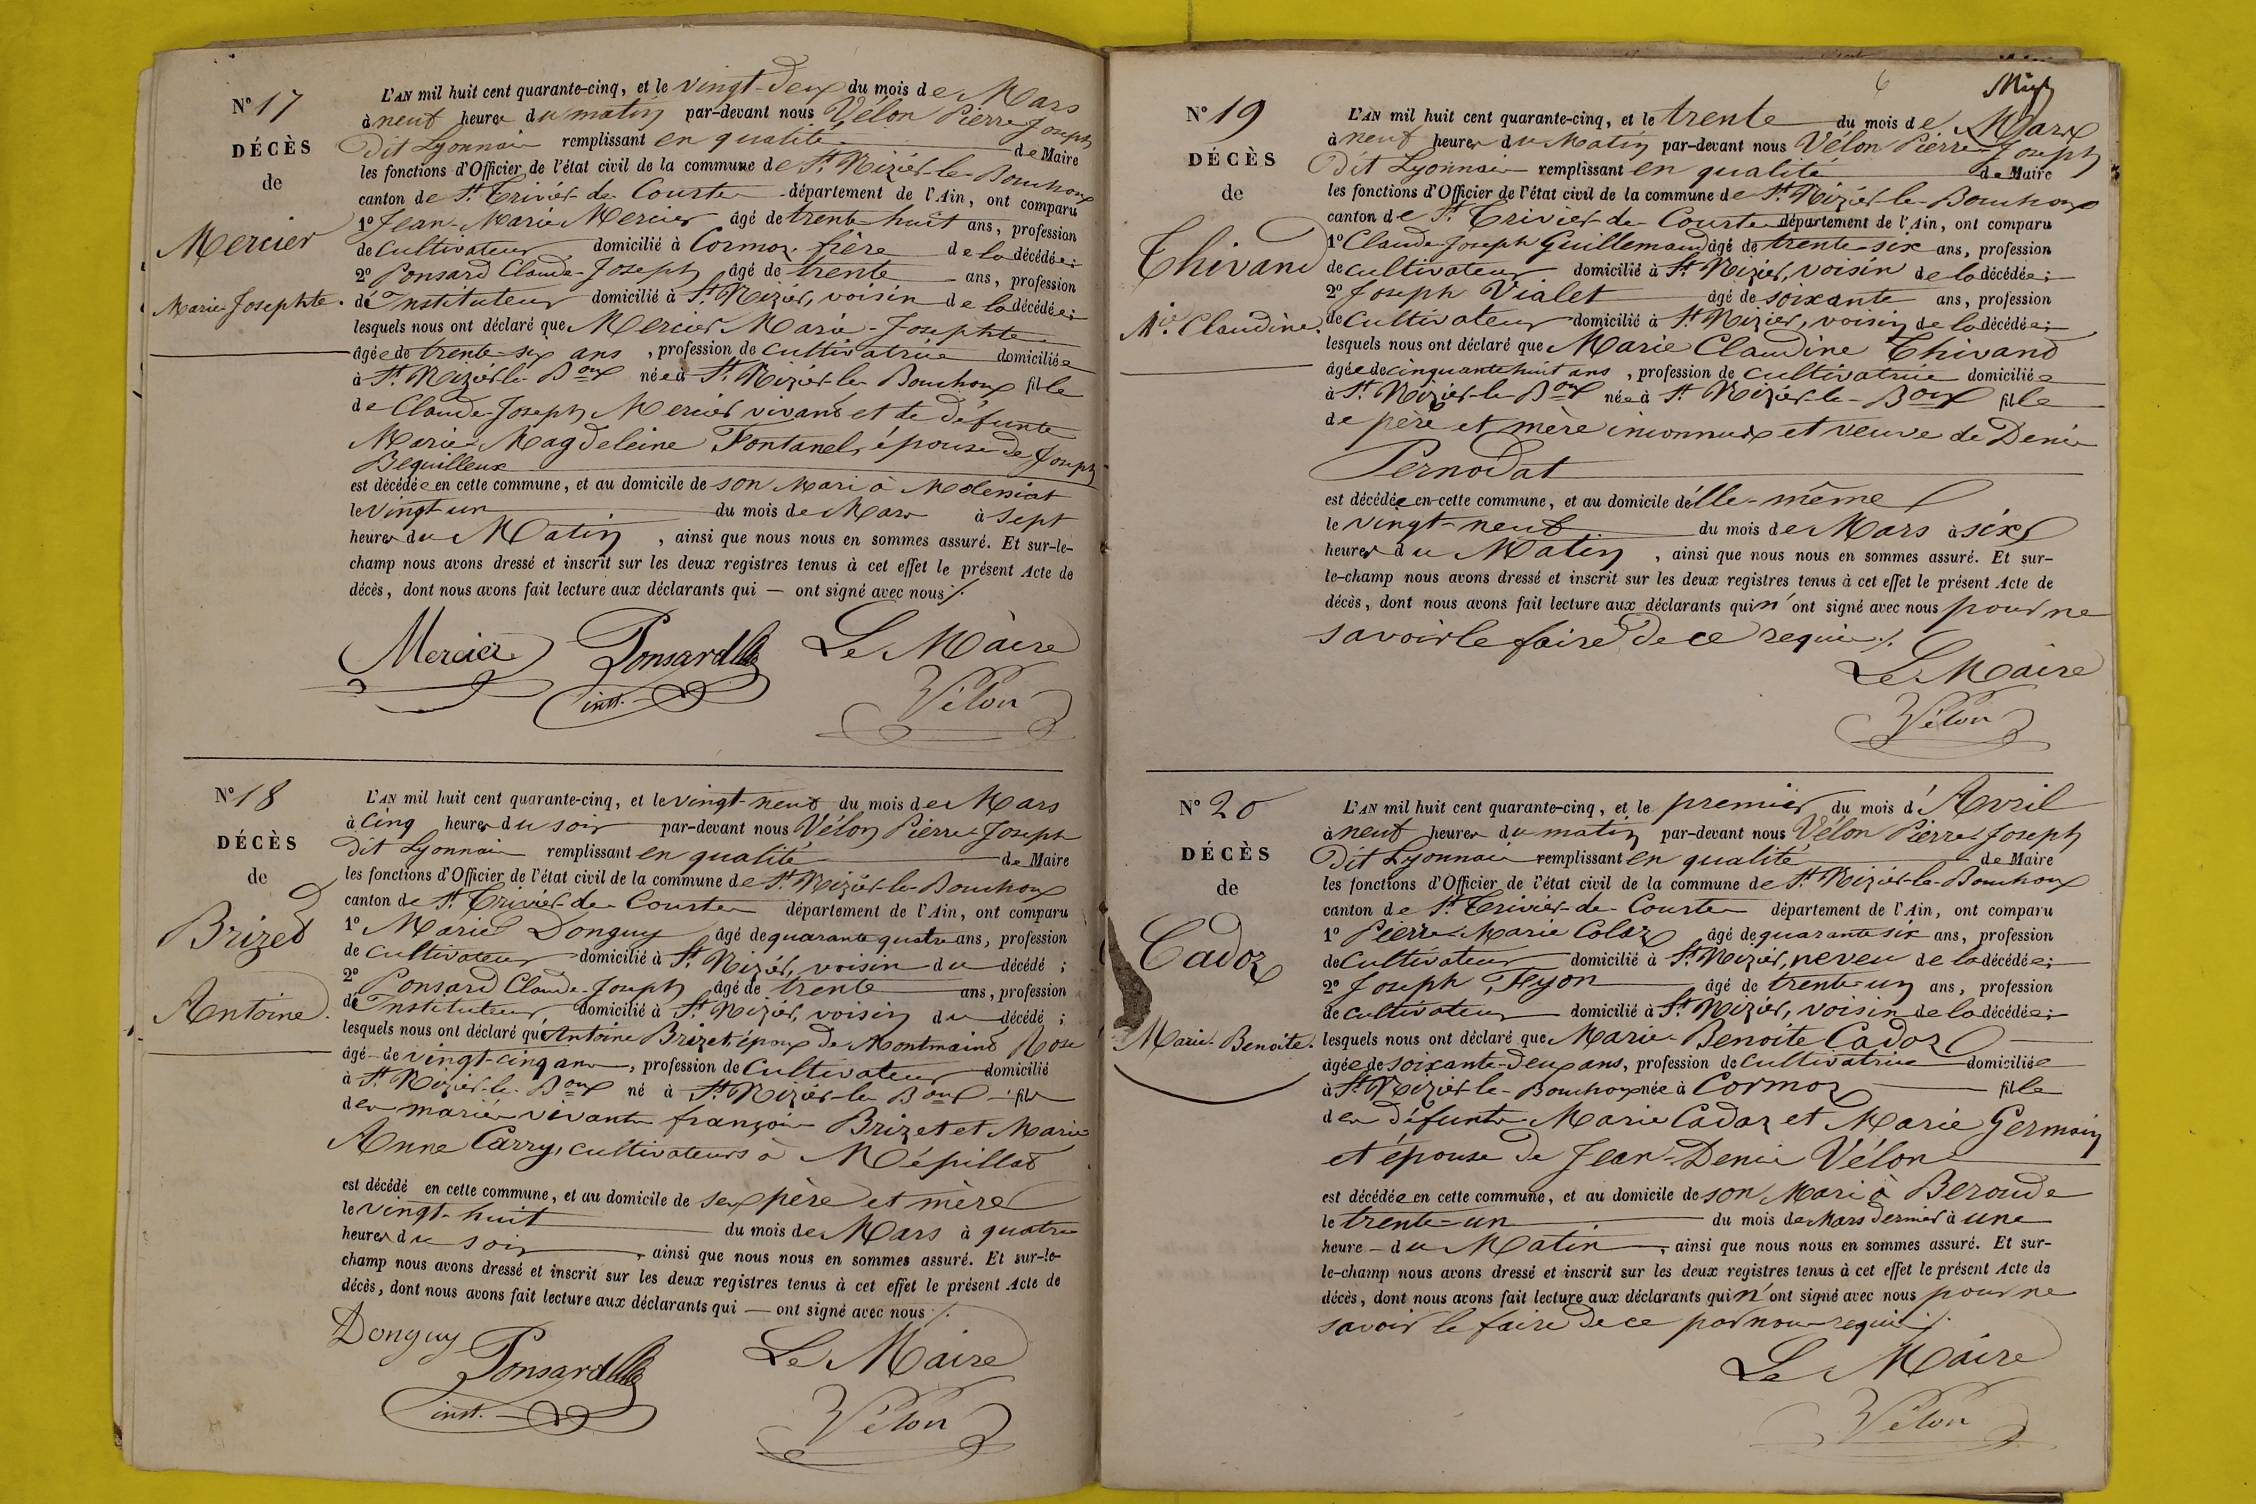 N° 17
DÉCÈS
de
Mercier
Marie Josephte.
L'AN mil huit cent quarante-cinq, et le vingt-deux du mois de Mars
à neuf heures du matin par-devant nous Vélon Pierre Joseph
dit Lyonnais remplissant en qualité de Maire
les fonctions d'Officier de l'état civil de la commune de St Nizier-le-Bouchoux
canton de St. Trivier-de-Courtes département de l'Ain, ont comparu
1° Jean-Marie Mercier âgé de trente-huit ans, profession
de cultivateur domicilié à Cormoz, frère de la décédée;
2° Ponsard Claude-Joseph âgé de trente ans, profession
de Instituteur domicilié à St. Nizier, voisin de la décédée;
lesquels nous ont déclaré que Mercier Marie-Josephte
âgée de trente-six ans, profession de cultivatrice domiciliée
à St. Nizier-le-Boux née à St. Nizier-le-Bouchoux fille
de Claude-Joseph Mercier vivant et de défunte
Marie Magdeleine Fontanel, épouse de Joseph
Bequilleux
est décédée en cette commune, et au domicile de son Mari à Molessiat
le vingt-un du mois de Mars à sept
heures du Matin, ainsi que nous nous en sommes assuré. Et sur-le-
champ nous avons dressé et inscrit sur les deux registres tenus à cet effet le présent Acte de
décès, dont nous avons fait lecture aux déclarants qui — ont signé avec nous ./.
Mercier Ponsard Le Maire
inst. Vélon
N° 18
DÉCÈS
de
Brized
Antoine.
L'AN mil huit cent quarante-cinq, et le vingt-neuf du mois de Mars
à cinq heures du soir par-devant nous Vélon Pierre Joseph
dit Lyonnais remplissant en qualité de Maire
les fonctions d'Officier de l'état civil de la commune de St. Nizier-le-Bouchoux
canton de St. Trivier-de-Courtes département de l'Ain, ont comparu
1° Marie Donguy âgé de quarante quatre ans, profession
de cultivateur domicilié à St. Nizier, voisin du décédé;
2° Ponsard Claude-Joseph âgé de trente ans, profession
de Instituteur, domicilié à St. Nizier, voisin du décédé;
lesquels nous ont déclaré que Antoine Brizet, époux de Montmaind Rose
âgé de vingt-cinq ans, profession de cultivateur domicilié
à St. Nizier-le-Boux né à St. Nizier-le-Boux fils
des mariés vivants françois Brizet et Marie
Anne Carry, cultivateurs à Mépillat
est décédé en cette commune, et au domicile de ses père et mère
le vingt-huit du mois de Mars à quatre
heures du soir, ainsi que nous nous en sommes assuré. Et sur-le-
champ nous avons dressé et inscrit sur les deux registres tenus à cet effet le présent Acte de
décès, dont nous avons fait lecture aux déclarants qui — ont signé avec nous ./.
Donguy Ponsard Le Maire
inst. Vélon
6
N° 19
DÉCÈS
de
Thivand
Mie. Claudine.
L'AN mil huit cent quarante-cinq, et le trente du mois de Mars
à neuf heures du Matin par-devant nous Vélon Pierre-Joseph
Dit Lyonnais remplissant en qualité de Maire
les fonctions d'Officier de l'état civil de la commune de St. Nizier-le-Bouchoux
canton de St. Trivier-de-Courtes département de l'Ain, ont comparu
1° Claude-Joseph Guillemaud âgé de trente-six ans, profession
de cultivateur domicilié à St. Nizier, voisin de la décédée;
2° Joseph Vialet âgé de soixante ans, profession
de cultivateur domicilié à St. Nizier, voisin de la décédée;
lesquels nous ont déclaré que Marie Claudine Thivand
âgée de cinquante huit ans, profession de cultivatrice domiciliée
à St. Nizier-le-Boux née à St. Nizier-le-Boux fille
de père et mère inconnus et veuve de Denis
Pernodat
est décédée en cette commune, et au domicile d'elle-même
le vingt-neuf du mois de Mars à six
heures du Matin, ainsi que nous nous en sommes assuré. Et sur-
le-champ nous avons dressé et inscrit sur les deux registres tenus à cet effet le présent Acte de
décès, dont nous avons fait lecture aux déclarants qui n'ont signé avec nous pour ne
savoir le faire De ce requis ./.
Le Maire
Vélon
N° 20
DÉCÈS
de
Cadoz
Marie-Benoite.
L'AN mil huit cent quarante-cinq, et le premier du mois d'Avril
à neuf heures du matin par-devant nous Vélon Pierre Joseph
Dit Lyonnais remplissant en qualité de Maire
les fonctions d'Officier de l'état civil de la commune de St. Nizier-le-Bouchoux
canton de St. Trivier-de-Courtes département de l'Ain, ont comparu
1° Pierre-Marie Coloz âgé de quarante six ans, profession
de cultivateur domicilié à St. Nizier, neveu de la décédée;
2° Joseph Fyon âgé de trente-un ans, profession
de cultivateur domicilié à St. Nizier, voisin de la décédée;
lesquels nous ont déclaré que Marie-Benoite Cadoz
âgée de soixante-deux ans, profession de cultivatrice domiciliée
à St. Nizier-le-Bouchoux née à Cormoz fille
des défunts Marie Cadoz et Marie Germain
et épouse de Jean-Denis Vélon
est décédée en cette commune, et au domicile de son Mari à Beroude
le trente-un du mois de Mars dernier à une
heure du Matin, ainsi que nous nous en sommes assuré. Et sur-
le-champ nous avons dressé et inscrit sur les deux registres tenus à cet effet le présent Acte de
décès, dont nous avons fait lecture aux déclarants qui n'ont signé avec nous pour ne
savoir le faire De ce par nous requis ./.
Le Maire
Vélon